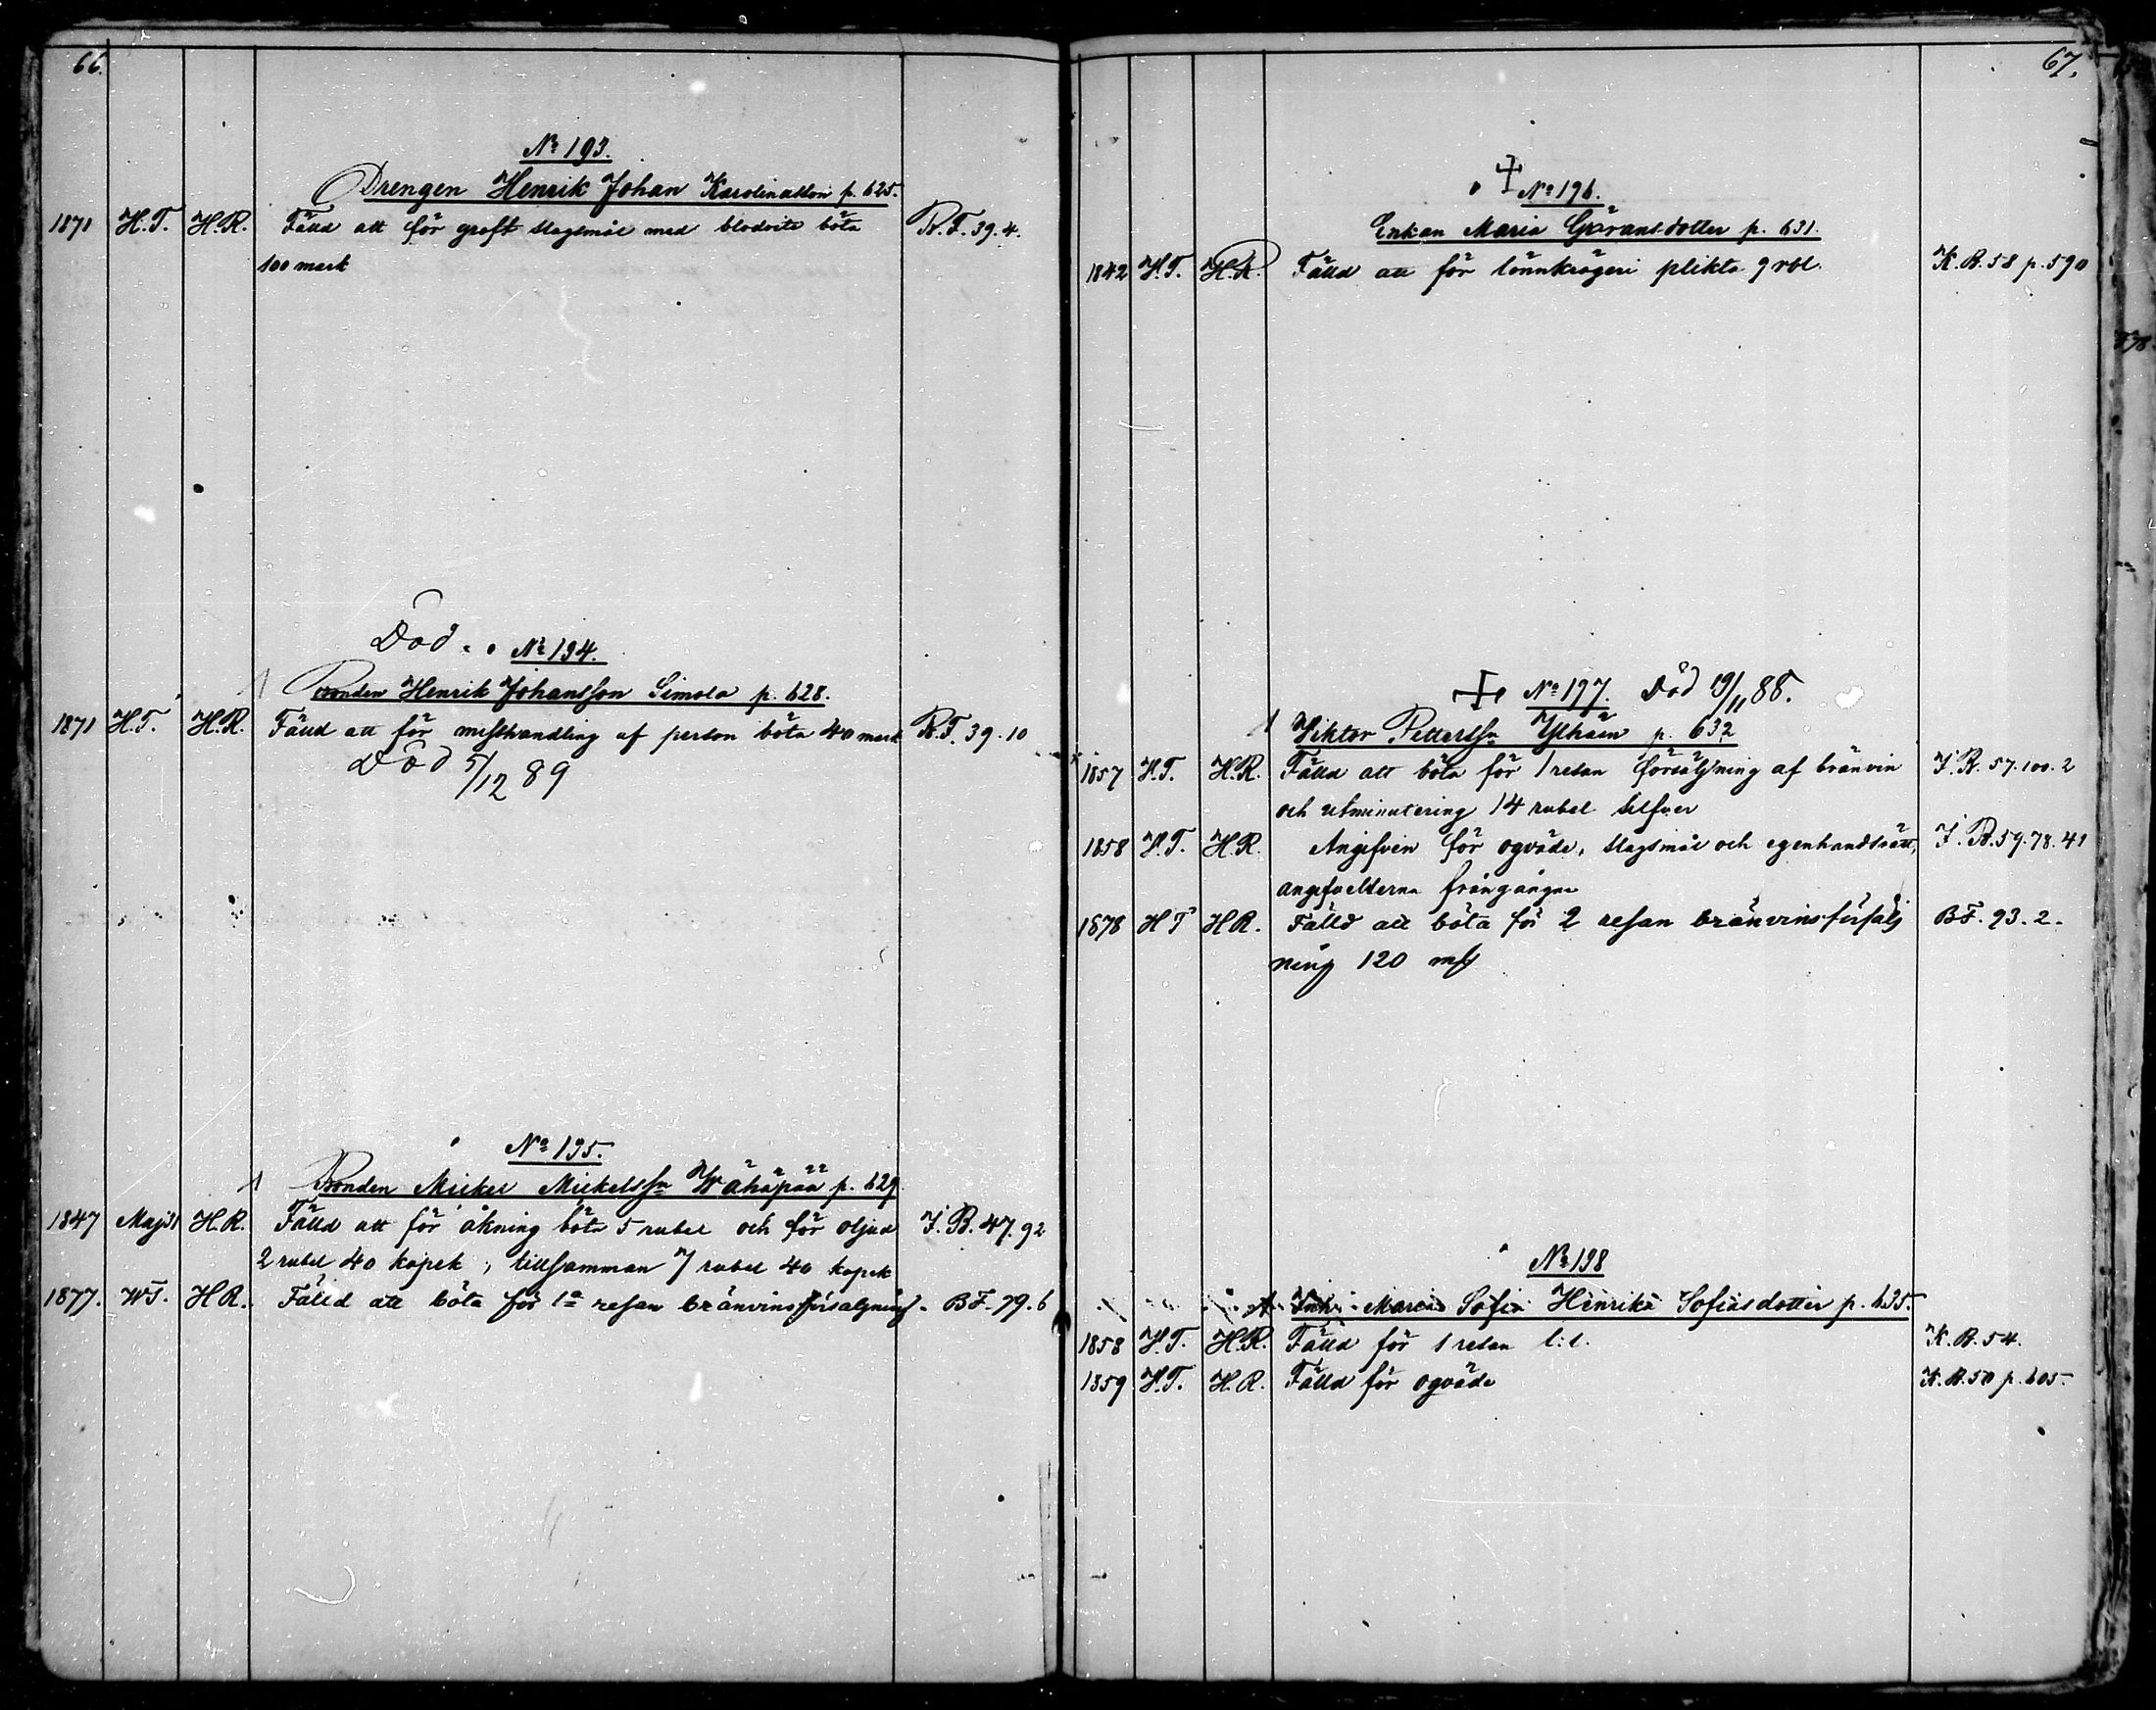 66.
No 193.
Drengen Henrik Johan Karolinasson p. 625.
1871 H.T. H.R. Fälld att för groft slagsmål med blodvite böta R.F. 39.4.
100 mark
Död. No 194.
Bonden Henrik Johansson Simola p. 628.
1871 H.T. H.R. Fälld att för misshandling af person böta 40 mark R.F. 39.10
Död 5/12 89
No 195.
Bonden Mickel Mickelssn Wähäpää p. 629
1847 Maj 31 H.R. Fälld att för åkning böta 5 rubel och för oljud J.B. 47.92
2 rubel 40 kopek, tillsamman 7 rubel 40 kopek
1877. WT. HR. Fälld att böta för 1a resan bränvinsförsäljning. BF. 79.6
67.
No 196.
Enkan Maria Göransdotter p. 631.
1842 H.T. H.R. Fälld att för lönnkrögeri plikta 9 rbl. K.B. 58 p. 590
No 197. Död 19/11 88.
Wiktor Petterssn p. 632
1857 H.T. H.R. Fälld att böta för 1 resan försäljning af bränvin J.B. 57.100.2
och utminutering 14 rubel silfver
1858 H.T. H.R. Angifven för oqväde, slagsmål och egenhandsrätt, J.B. 59.78.41
angifvelserna frångångne
1878 HT HR. Fälld att böta för 2 resan bränvinsförsälj BF. 93.2.
ning 120 mk
No 198
Maria Sofia Henrika Sofiasdotter p. 635.
1858 H.T. H.R. Fälld för 1 resan l:l. K.B. 54.
1859 H.T. H.R. Fälld för oqväde K.B. 50 p. 605.